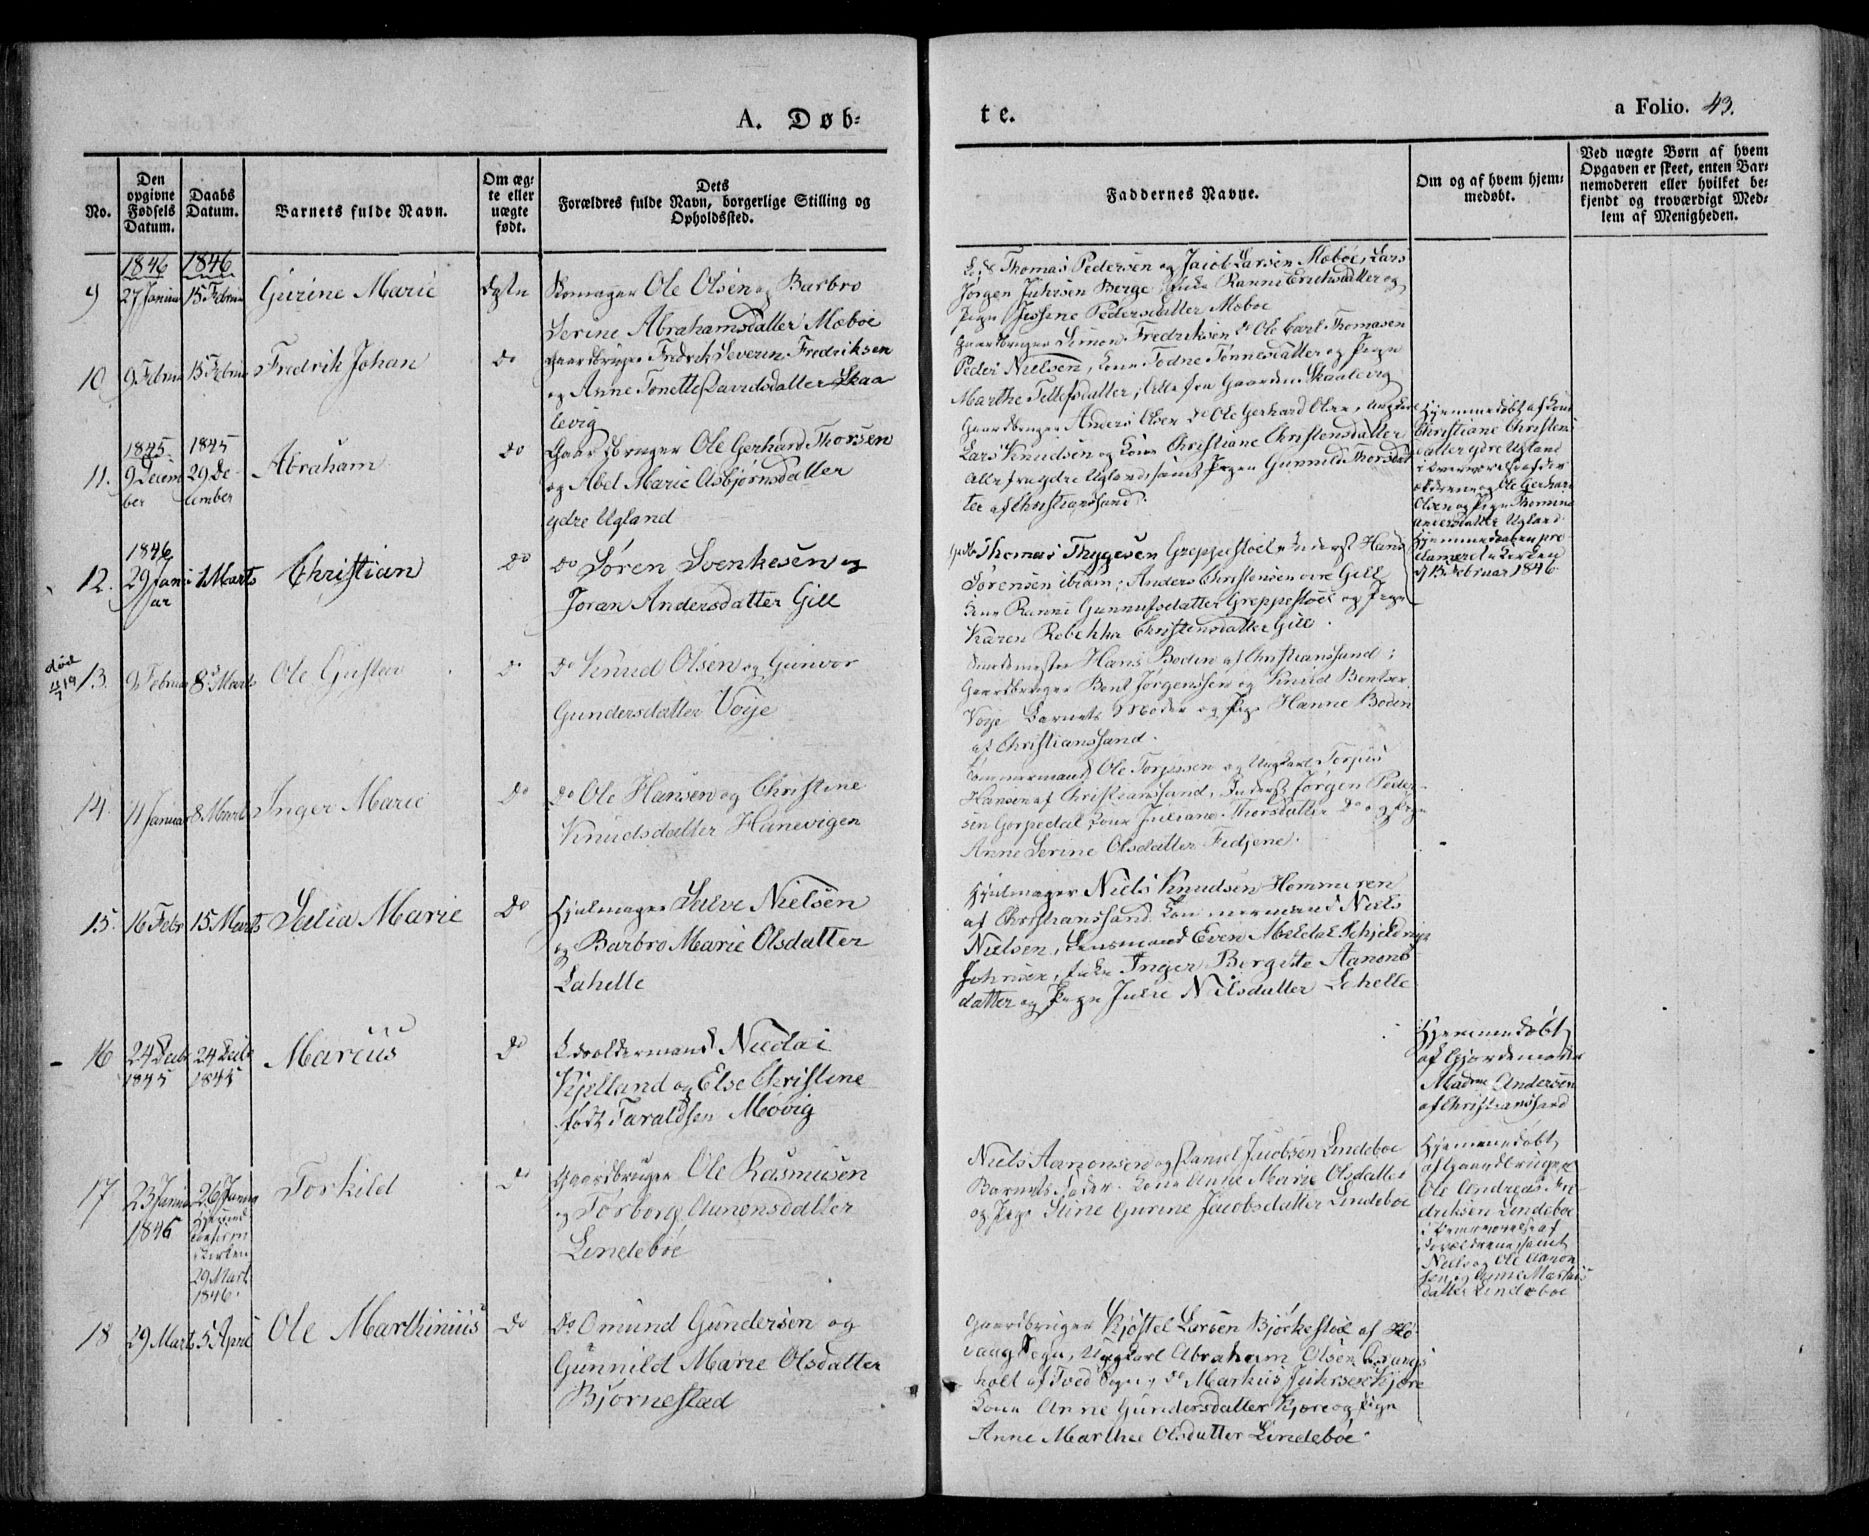 A. Døb-
te.
a Folio. 43.
No.
Den opgivne Fødsels Datum.
Daabs Datum.
Barnets fulde Navn.
Om ægte eller uægte født.
Dets Forældres fulde Navn, borgerlige Stilling og Opholdssted.
Faddernes Navne.
Om og af hvem hjemmedøbt.
Ved uægte Børn af hvem Opgaven er skeet, enten Barnemoderen eller hvilket bekjendt og troværdigt Medlem af Menigheden.
1846 1846
9 27 Januar 15 Februar Gurine Marie Ægte
Ole Olsen og Barbro
Serine Abrahamsdatter Mæbøe
Thomas Pedersen og Jacob Larsen Mæbøe, Lars
Jørgen Berge
Pige Josine Pedersdatter Mæboe
10. 9 Februar 15 Februar Fredrik Johan Do
Gaardbruger Fredrik Severin Fredriksen
og Anne Tonette Davidsdatter Skaa
levig
Gaardbruger Simon Fredriksen Do Ole Carl Thomasen
Peder Nielsen, Kone Todne Tønnesdatter og Pige
Marthe Tellefsdatter, alle fra Gaarden Skaalevig
11. 1845 9 Decem
ber
1845 29 De-
cember
Abraham Do
Gaardbruger Ole Gerhard Thorsen
og Abel Marie Asbjørnsdatter
ydre Ugland
Gaardbruger Anders Olsen Do Ole Gerhard Olsen,
Lars Knudsen og Kone Christiane Christensdatter
Alle fra ydre Ugland, samt Pigen Gunnild Thorsdat
ter af Christianssand.
Hjemmedøbt af Kone
Christiane Christens
datter ydre Ugland
i Overværelse af For
ældrene og Ole Gerhard
Olsen og Pige
Andersdatter Ugland
Hjemmedaaben pro
clameret i Kirken
d 15 Februar 1846.
12. 1846 29 Janu
ar
1 Marts Christian Do
Do Søren Svenkesen og
Joran Andersdatter Gill
Thomas Thygesen Greppestøel Inderst Hans
Sørensen ibidm, Anders Christensen øvre Gill
Kone Ranni Gunnufsdatter Greppestøel og Pige
Karen Rebekka Christensdatter Gill.
død
11/7 19
13. 9 Februar 8 Marts Ole Gustav Do
Do Knud Olsen og Gunvor
Gundersdatter Voje
Hans Boden af Christianssand;
Gaardbruger Bent Jørgensen og Knud Bentsen
Voje Barnets Moder og Pige Hanne Boden
af Christianssand.
14. 11 Januar 8 Marts Inger Marie Do
Do Ole Hansen og Christine
Knudsdatter Hanevigen
Tømmermand Ole Torjussen og Ungkarl Torjus
Hansen af Christianssand, Inderst Jørgen Peder
sen Kone Juliane Thorsdatter Do og Pige
Anne Serine Olsdatter Fidjene.
15. 16 Febr 15 Marts Salia Marie Do
Hjulmager Salve Nielsen
og Barbro Marie Olsdatter
Lahelle
Hjulmager Niels Knudsen Hommeren
af Christianssand Tømmermand Niels
Nielsen, Lensmand Even Abeldal
Inger Bergitte Aanons
datter og Pige Julie Nilsdatter Lahelle
16 24 Decbr
1845
24 Decbr
1845
Marcus Do
Nicolai
Kjelland og Else Christine
født Taraldsen Møvig
Hjemmedøbt
af Gjordemoder
Madme Andersen
af Christianssand
17 23 Januar
1846
26 Janua
i Kirken
29 Mart
1846.
Torkild Do
Gaardbruger Ole Rasmusen
og Torborg Aanonsdatter
Lindebøe
Niels Aanonsen og Daniel Jacobsen Lindeboe
Barnets Fader. Kone Anne Marie Olsdatter
og Pige Stine Gurine Jacobsdatter Lindeboe
Hjemmedøbt
af Gaardbruger
Ole Andreas Fre
driksen Lindeboe
i Overværelse af
Forældrene, samt
Niels og Ole Aanon
sen og Anne Markus
datter Lindeboe
18 29 Marts 5 April Ole Marthinius Do
Do Omund Gundersen og
Gunnild Marie Olsdatter
Bjørnestad
Gaardbruger Kjøstel Larsen Bjørkestøel af Hø-
vaag Sogn, Ungkarl Abraham Olsen
holt af Tved Sogn, Do Markus Kjære
Kone Anne Gundersdatter Kjære og Pige
Anne Marthe Olsdatter Lindebøe.